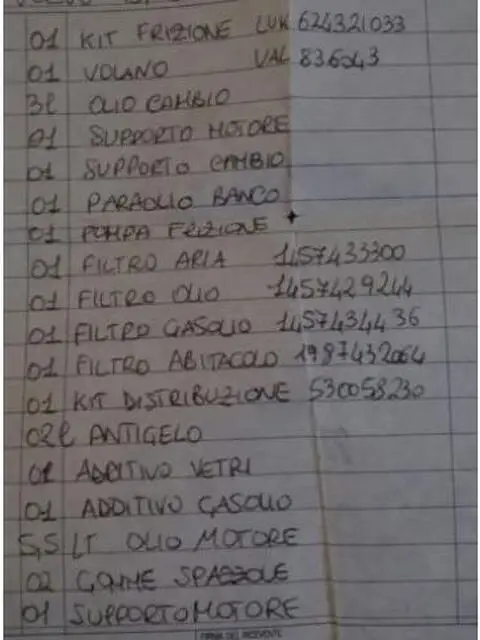 01 KIT FRIZIONE LUK 624321033
01 VOLANO VAL 836043
3l OLIO CAMBIO
01 SUPPORTO MOTORE
01 SUPPORTO CAMBIO
01 PARAOLIO BANCO
01 POMPA FRIZIONE +
01 FILTRO ARIA 1457433300
01 FILTRO OLIO 1457429244
01 FILTRO GASOLIO 1457434436
01 FILTRO ABITACOLO 1987432064
01 KIT DISTRIBUZIONE 530058230
02l ANTIGELO
01 ADDITIVO VETRI
01 ADDITIVO GASOLIO
5,5 LT OLIO MOTORE
02 GOMME SPAZZOLE
01 SUPPORTO MOTORE
FIRMA DEL RICEVENTE